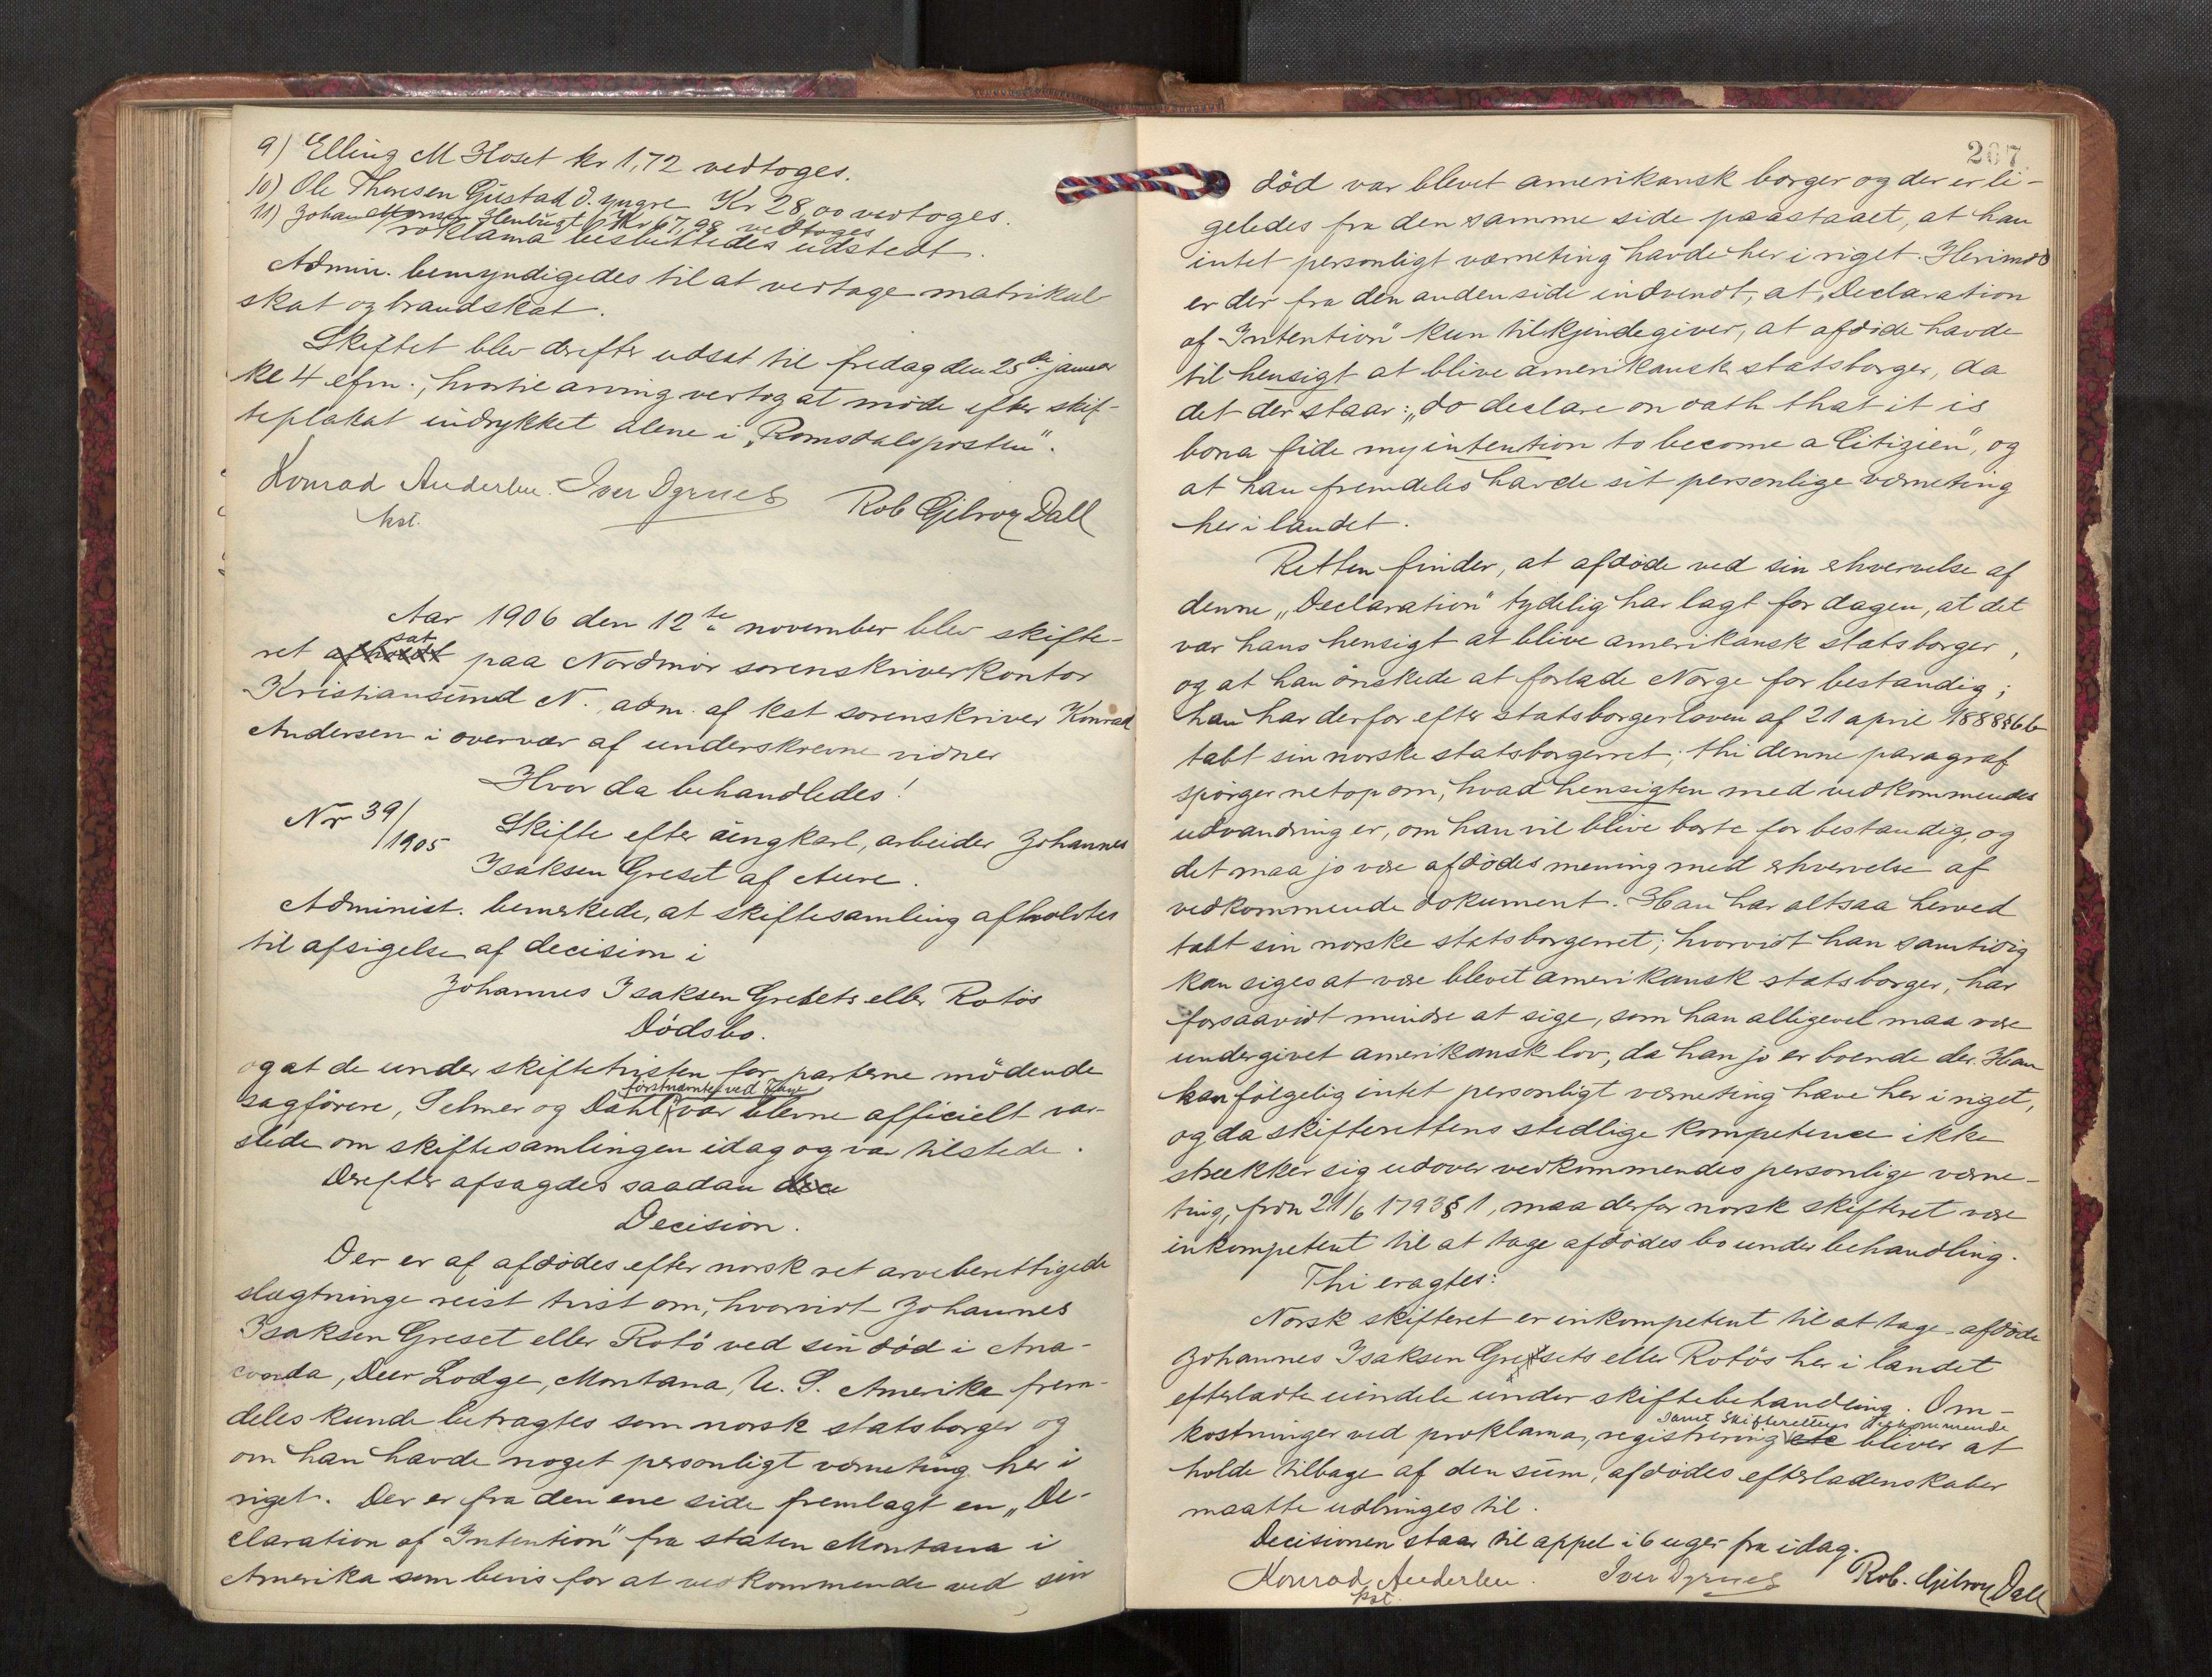 9) Elling M Hoset kr 1,72 vedtoges.
10) Ole Theresen Gustad d. yngre Kr 28,00 vedtoges.
11) Johan Henbugt Kr 67,98 vedtoges
Proklama besluttedes udstedt.
Admin. bemyndigedes til at vedtage matrikul
skat og brandskat.
Skiftet blev derefter udsat til fredag den 25de januar
kl 4 efm., hvortil arving vertog at møde efter skif-
teplakat indrykket alene i „Romsdalsposten".
Konrad Andersen. Iver Dyrnes Rob Gilroy Dall
kst.
Aar 1906 den 12te november blev skifte-
ret afholdt sat paa Nordmør sorenskriverkontor
Kristiansund N. adm. af kst sorenskriver Konrad
Andersen i overvær af underskrevne vidner
Hvor da behandledes!
Nr 39/1905 Skifte efter ungkarl, arbeider Johannes
Isaksen Greset af Aure.
Administ. bemerkede, at skiftesamling afholdtes
til afsigelse af decision i
Johannes Isaksen Gresets eller Rotøs
Dødsbo.
og at de under skiftetvisten for parterne mødende
sagførere, Selmer og Dahl, førstnævnte ved var blevne officielt var-
slede om skiftesamlingen idag og var tilstede.
Derefter afsagdes saadan dec
Decision.
Der er af afdødes efter norsk ret arveberettigede
slægtninge reist tvist om, hvorvidt Johannes
Isaksen Greset eller Rotø ved sin død i Ana-
conda, Deer Lodge, Montana, U. S. Amerika frem-
deles kunde betragtes som norsk statsborger og
om han havde noget personligt værneting her i
riget. Der er fra den ene side fremlagt en „De-
claration of Intention" fra staten Montana i
Amerika som bevis for at vedkommende ved sin
267.
død var blevet amerikansk borger og der er li-
geledes fra den samme side paastaaet, at han
intet personligt værneting havde her i riget. Herimod
er der fra den anden side indvendt, at „Declaration
of Intention" kun tilkjendegiver, at afdøde havde
til hensigt at blive amerikansk statsborger, da
det der staar: „do declare on oath that it is
bona fide my intention to become a Citizien", og
at han fremdeles havde sit personlige værneting
her i landet.
Retten finder, at afdøde ved sin erhvervelse af
denne „Declaration" tydelig har lagt for dagen, at det
var hans hensigt at blive amerikansk statsborger,
og at han ønskede at forlade Norge for bestandig;
han har derfor efter statsborgerloven af 21 april 1888 § 6 b
tabt sin norske statsborgerret; thi denne paragraf
spørger netop om, hvad hensigten med vedkommendes
udvandring er, om han vil blive borte for bestandig, og
det maa jo være afdødes mening med erhvervelse af
vedkommende dokument. Han har altsaa herved
tabt sin norske statsborgerret; hvorvidt han samtidig
kan siges at være blevet amerikansk statsborger, har
forsaavidt mindre at sige, som han alligevel maa være
undergivet amerikansk lov, da han jo er boende der. Han
kan følgelig intet personligt værneting have her i riget,
og da skifterettens stedlige kompetence ikke
strækker sig udover vedkommendes personlige værne-
ting, frdn 21/6 1793 § 1, maa derfor norsk skifteret være
inkompetent til at tage afdødes bo under behandling.
Thi eragtes:
Norsk skifteret er inkompetent til at tage afdøde
Johannes Isaksen Gresets eller Rotøs her i landet
efterladte eiendele under skiftebehandling. Om-
kostninger ved proklama, registrering etc samt skifterettens tilkommende bliver at
holde tilbage af den sum, afdødes efterladenskaber
maatte udbringes til.
Decisionen staar til appel i 6 uger fra idag.
Konrad Andersen. Iver Dyrnes Rob. Gilroy Dall
kst.